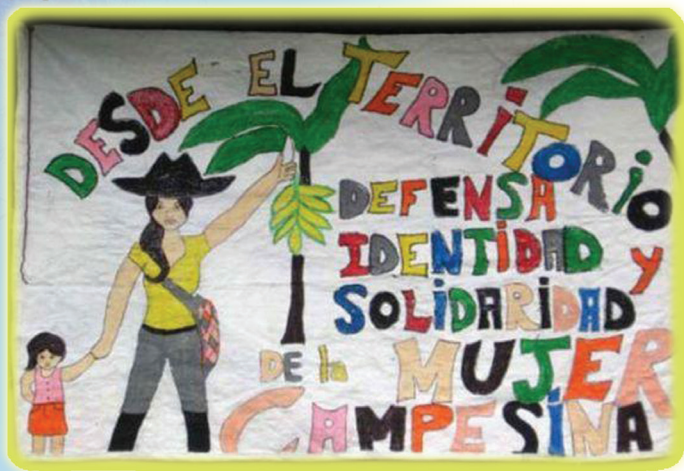 DESDE EL TERRITORIO
DEFENSA
IDENTIDAD y
SOLiDARiDAD
DE la MUJER
CAMPESiNA